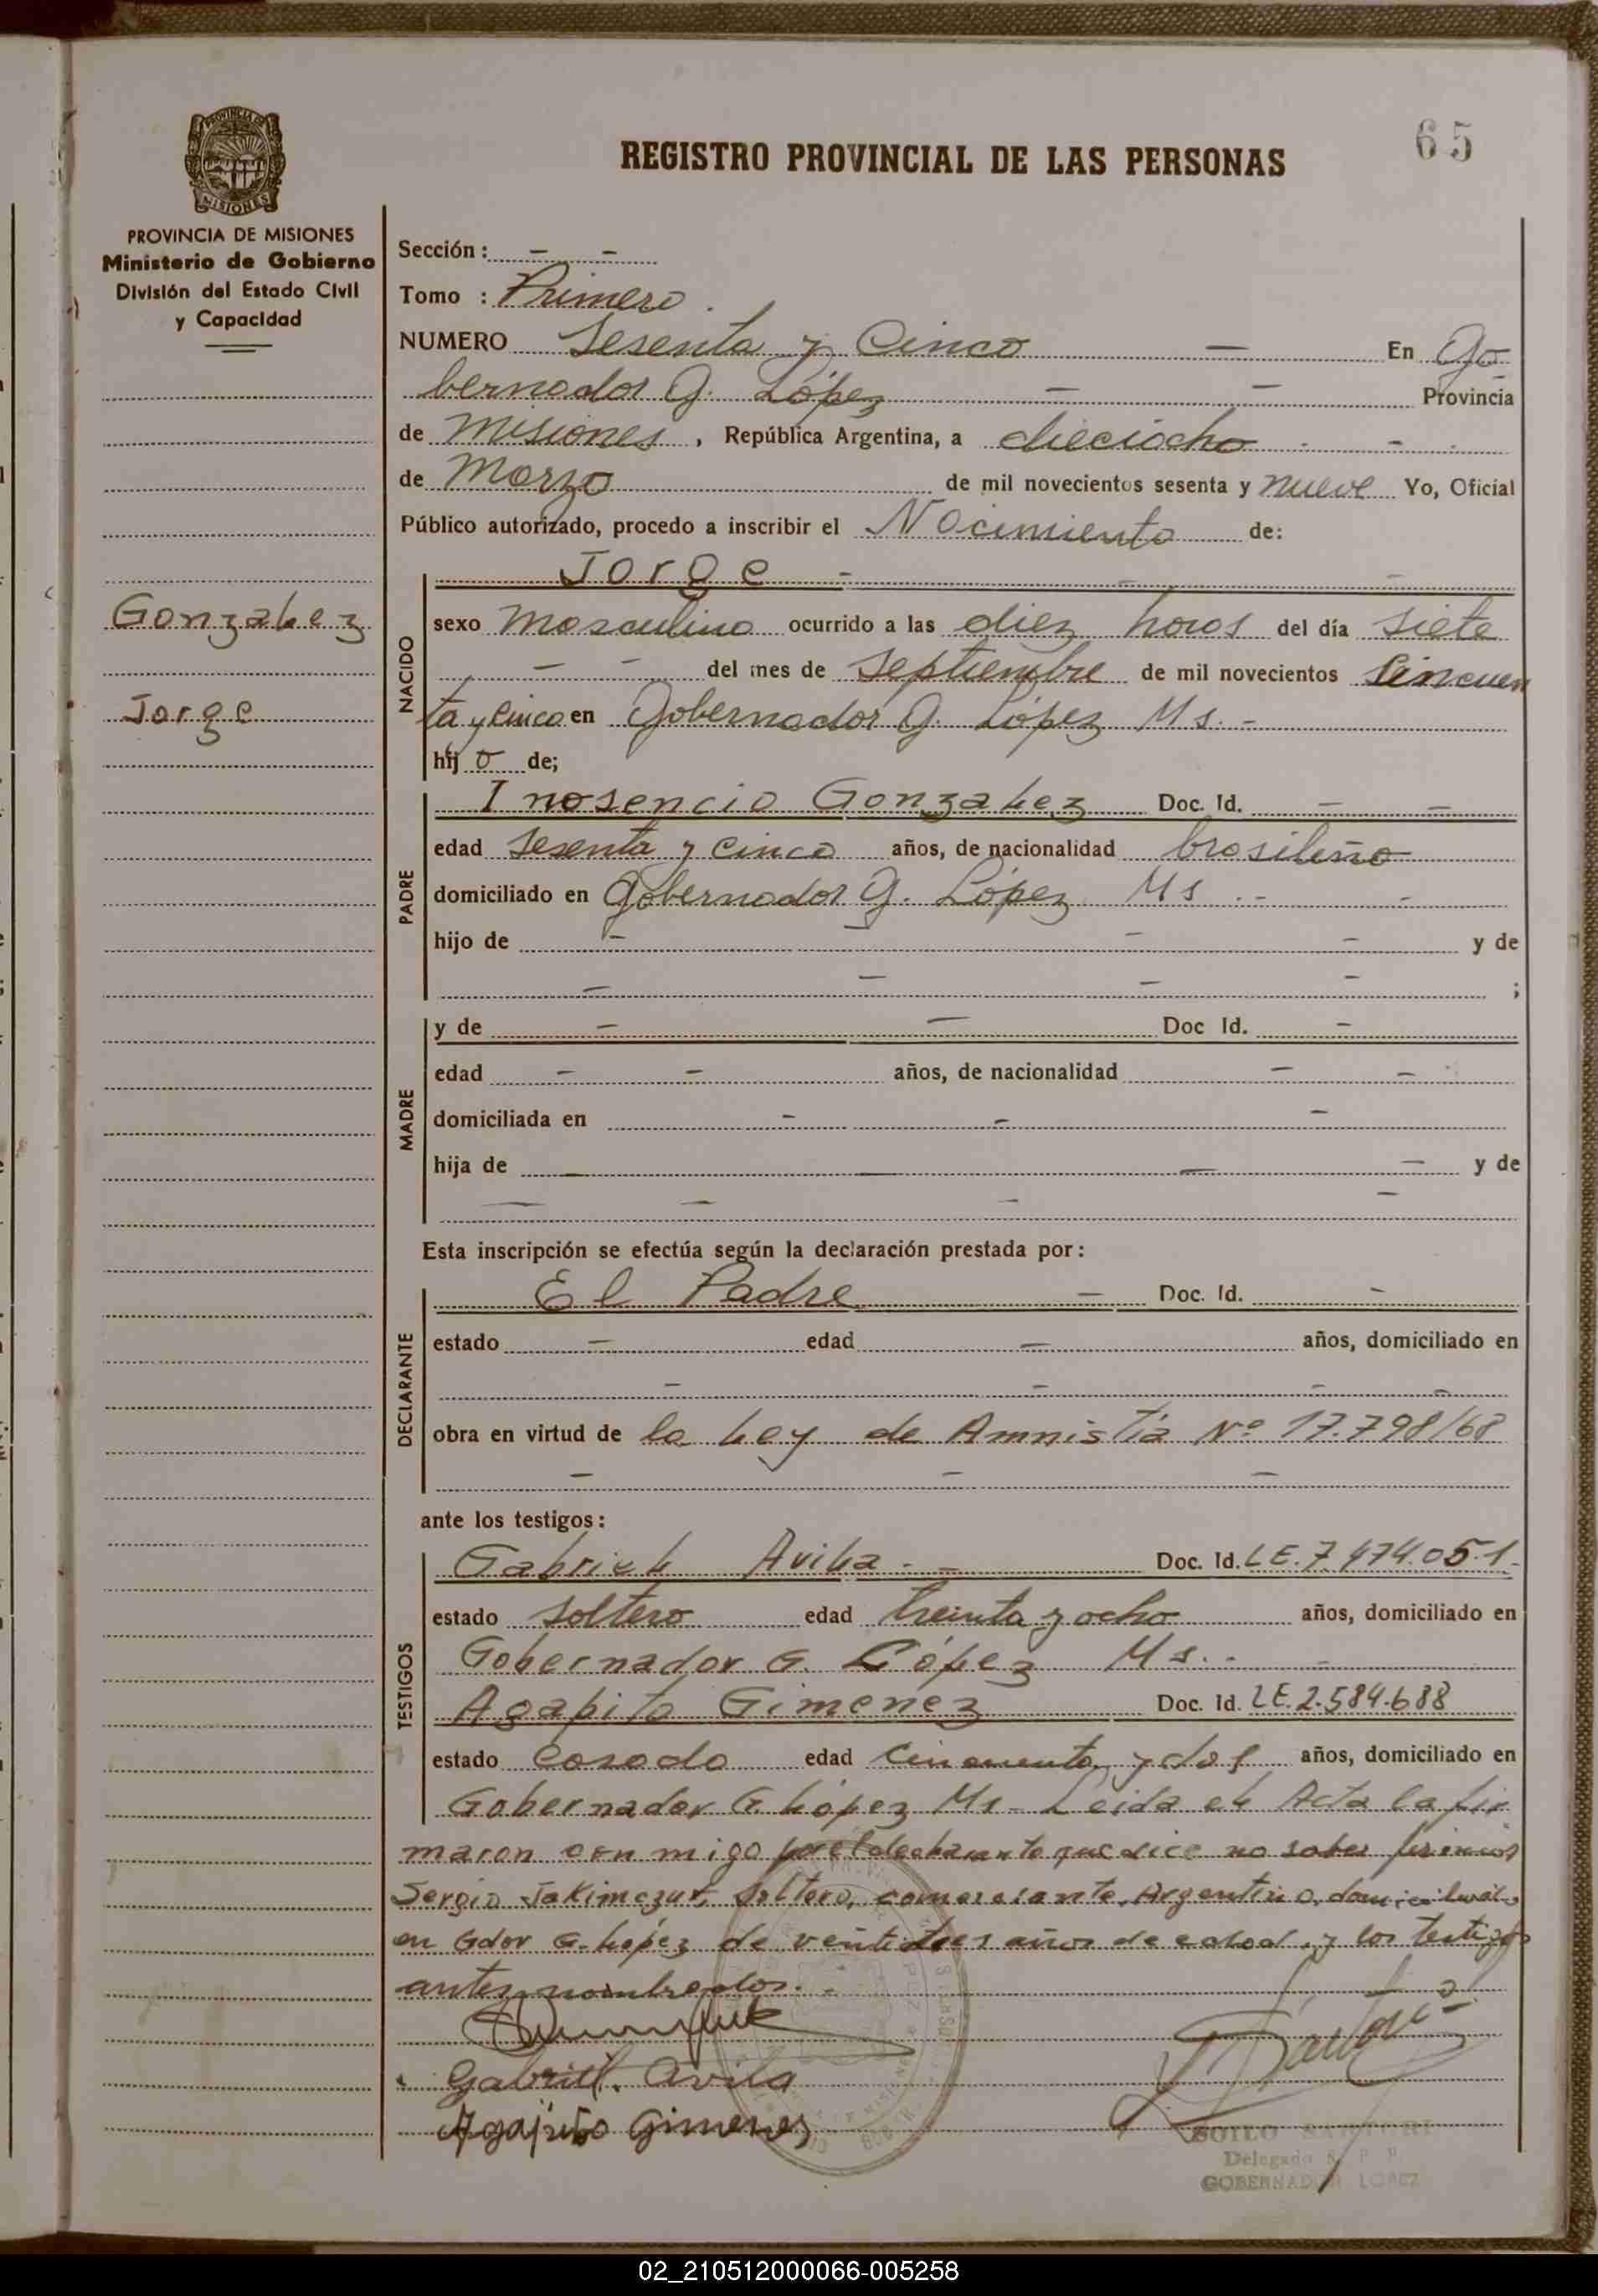 65
REGISTRO PROVINCIAL DE LAS PERSONAS
PROVINCIA DE
MISIONES
PROVINCIA DE MISIONES
Ministerio de Gobierno
División del Estado Civil
y Capacidad
Gonzalez
Jorge
Sección : - -
Tomo : Primero.
NUMERO Sesenta y Cinco - En Go
bernador G. López - - Provincia
de Misiones, República Argentina, a dieciocho - - -
de Marzo de mil novecientos sesenta y nueve Yo, Oficial
Público autorizado, procedo a inscribir el Nacimiento de:
Jorge - - -
NACIDO
sexo Masculino ocurrido a las diez horas del día siete
- - del mes de Septiembre de mil novecientos Cincuen
ta y Cinco en Gobernador G. López Ms. -
hijo de;
PADRE
Inosencio Gonzalez Doc. Id. - -
edad Sesenta y Cinco años, de nacionalidad brasileño
domiciliado en Gobernador G. López Ms .- -
hijo de - - - - y de
- - - - ;
MADRE
y de - - Doc Id. -
edad - - años, de nacionalidad - -
domiciliada en - - -
hija de - - - - y de
- - - -
Esta inscripción se efectúa según la declaración prestada por:
DECLARANTE
El Padre - Doc. Id. -
estado - edad - años, domiciliado en
- - - -
obra en virtud de la Ley de Amnistía Nº 17.798/68
- - -
ante los testigos:
TESTIGOS
Gabriel Avila. - Doc. Id. LE. 7.474.051.
estado Soltero edad treinta y ocho años, domiciliado en
Gobernador G. López Ms. - -
Agapito Gimenez Doc. Id. LE. 2.584.688
estado Casado edad Cincuenta y dos años, domiciliado en
Gobernador G. López Ms - Leida el Acta la fir
maron con migo por el declarante que dice no saber firmar
Sergio Jakimczuk, Soltero, comerciante, Argentino, domiciliado
en Gdor G. López de veintitres años de edad y los testigos
antes nombrados. -
Gabriel. Avila
Agapito Gimenez
SOILO
Delegado R. P. P.
GOBERNADOR LOPEZ
02_210512000066-005258